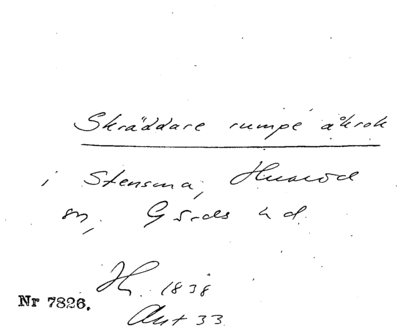 Skräddare rumpe åkrok
i Stensma, Huaröd
sn, Gärds hd.
H. 1838
Nr 7826.
Akt 33.